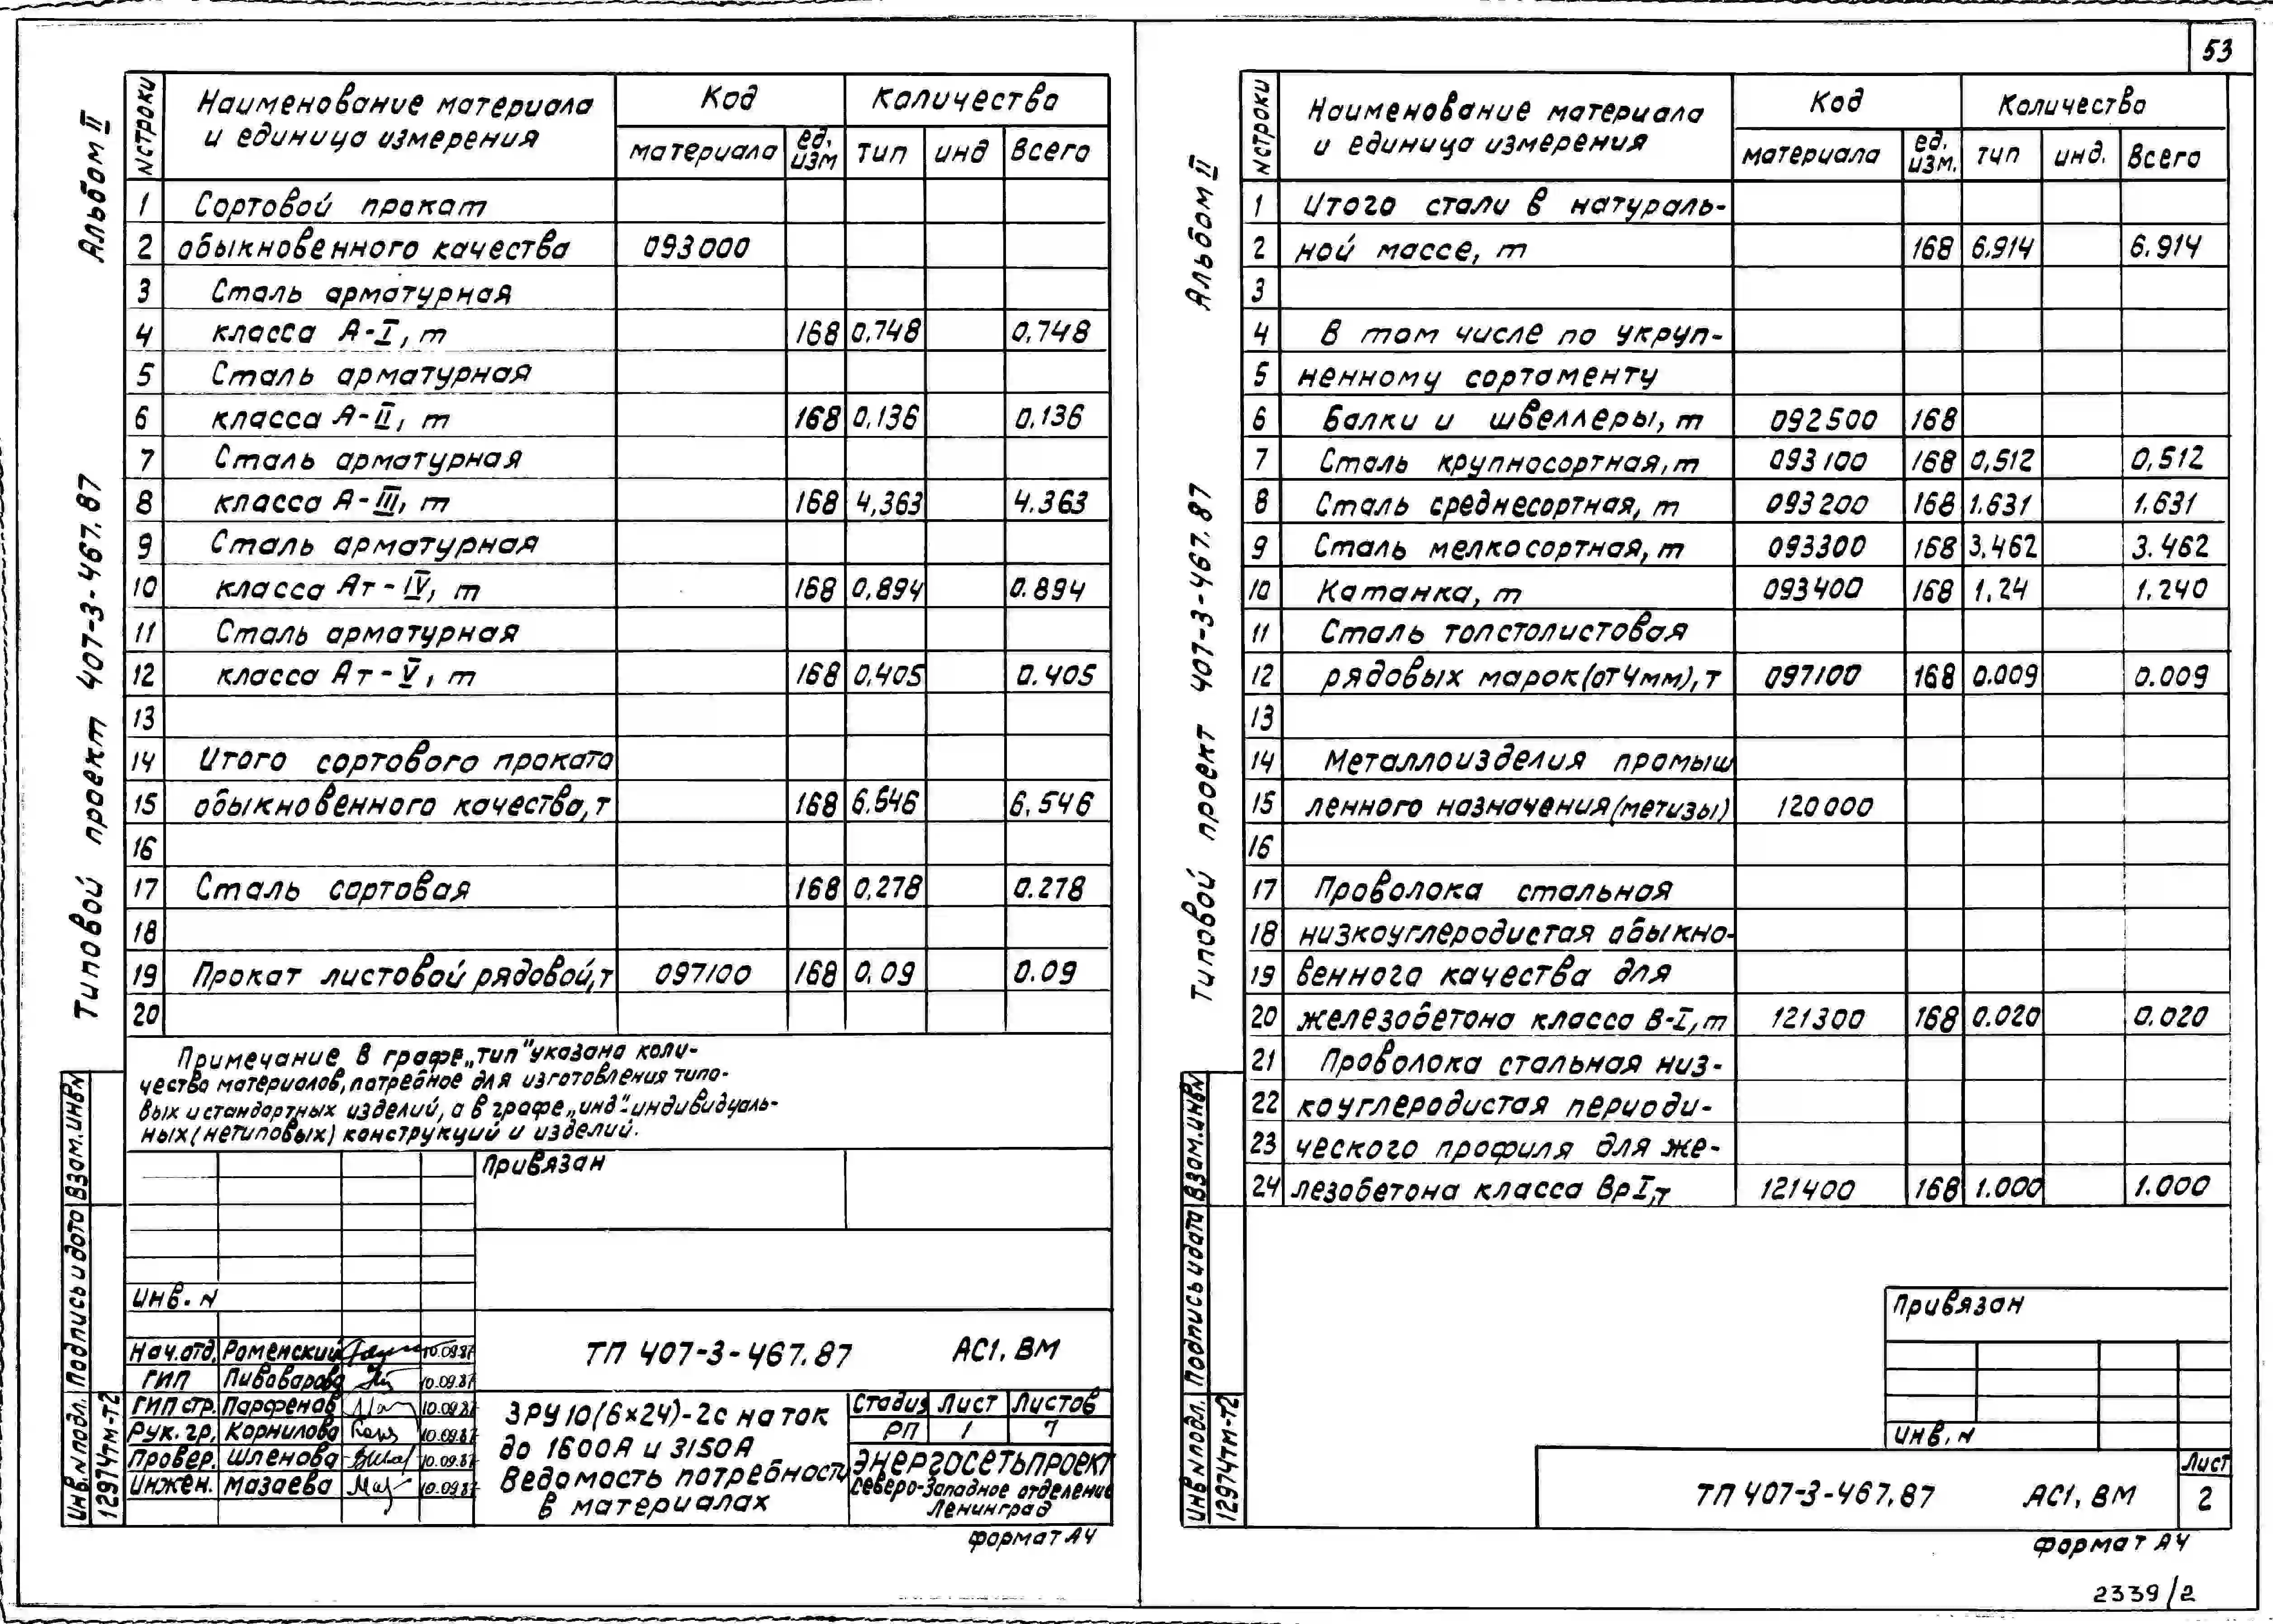 53
Альбом II
Типовой проект 407-3-467.87
N строки Наименование материала и единица измерения Код Количество
материала ед. изм тип инд всего
1 Сортовой прокат
2 обыкновенного качества 093000
3 Сталь арматурная
4 класса А-I, т 168 0.748 0,748
5 Сталь арматурная
6 класса А-II, т 168 0,136 0,136
7 Сталь арматурная
8 класса А-III, т 168 4,363 4.363
9 Сталь арматурная
10 класса Ат-IV, т 168 0,894 0.894
11 Сталь арматурная
12 класса Ат-V, т 168 0,405 0.405
13
14 Итого сортового проката
15 обыкновенного качества, т 168 6.546 6,546
16
17 Сталь сортовая 168 0,278 0.278
18
19 Прокат листовой рядовой, т 097100 168 0,09 0.09
20
Примечание В графе „тип" указано коли-
чество материалов, потребное для изготовления типо-
вых и стандартных изделий, а в графе „инд"-индивидуаль-
ных (нетиповых) конструкций и изделий.
Привязан
Инв. N
Нач.отд. Роменский 10.09.87
ГИП Пивоварова 10.09.87
ГИП стр. Парфенов 10.09.87
Рук. гр. Корнилова 10.09.87
Провер. Шленова 10.09.87
Инжен. Мазаева 10.09.87
ТП 407-3-467.87 АС1. ВМ
ЗРУ 10(6×24)-2с на ток
до 1600А и 3150А
Ведомость потребности
в материалах
Стадия Лист Листов
РП 1 7
Энергосетьпроект
Северо-Западное отделение
Ленинград
Инв. N подл. Подпись и дата Взам. инв N
12974тм-т2
формат А4
Альбом II
Типовой проект 407-3-467.87
N строки Наименование материала и единица измерения Код Количество
материала ед. изм. тип инд. Всего
1 Итого стали в натураль-
2 ной массе, т 168 6.914 6.914
3
4 В том числе по укруп-
5 ненному сортаменту
6 Балки и швеллеры, т 092500 168
7 Сталь крупносортная, т 093100 168 0,512 0,512
8 Сталь среднесортная, т 093200 168 1.631 1.631
9 Сталь мелкосортная, т 093300 168 3.462 3.462
10 Катанка, т 093400 168 1.24 1.240
11 Сталь толстолистовая
12 рядовых марок (от 4мм), т 097100 168 0.009 0.009
13
14 Металлоизделия промыш
15 ленного назначения (метизы) 120000
16
17 Проволока стальная
18 низкоуглеродистая обыкно-
19 венного качества для
20 железобетона класса В-I, т 121300 168 0.020 0.020
21 Проволока стальная низ-
22 коуглеродистая периоди-
23 ческого профиля для же-
24 лезобетона класса ВрI, т 121400 168 1.000 1.000
Привязан
Инв. N
ТП 407-3-467.87 АС1. ВМ
Лист
2
Инв N подл. Подпись и дата Взам. инв N
12974тм-т2
формат А4
2339/2